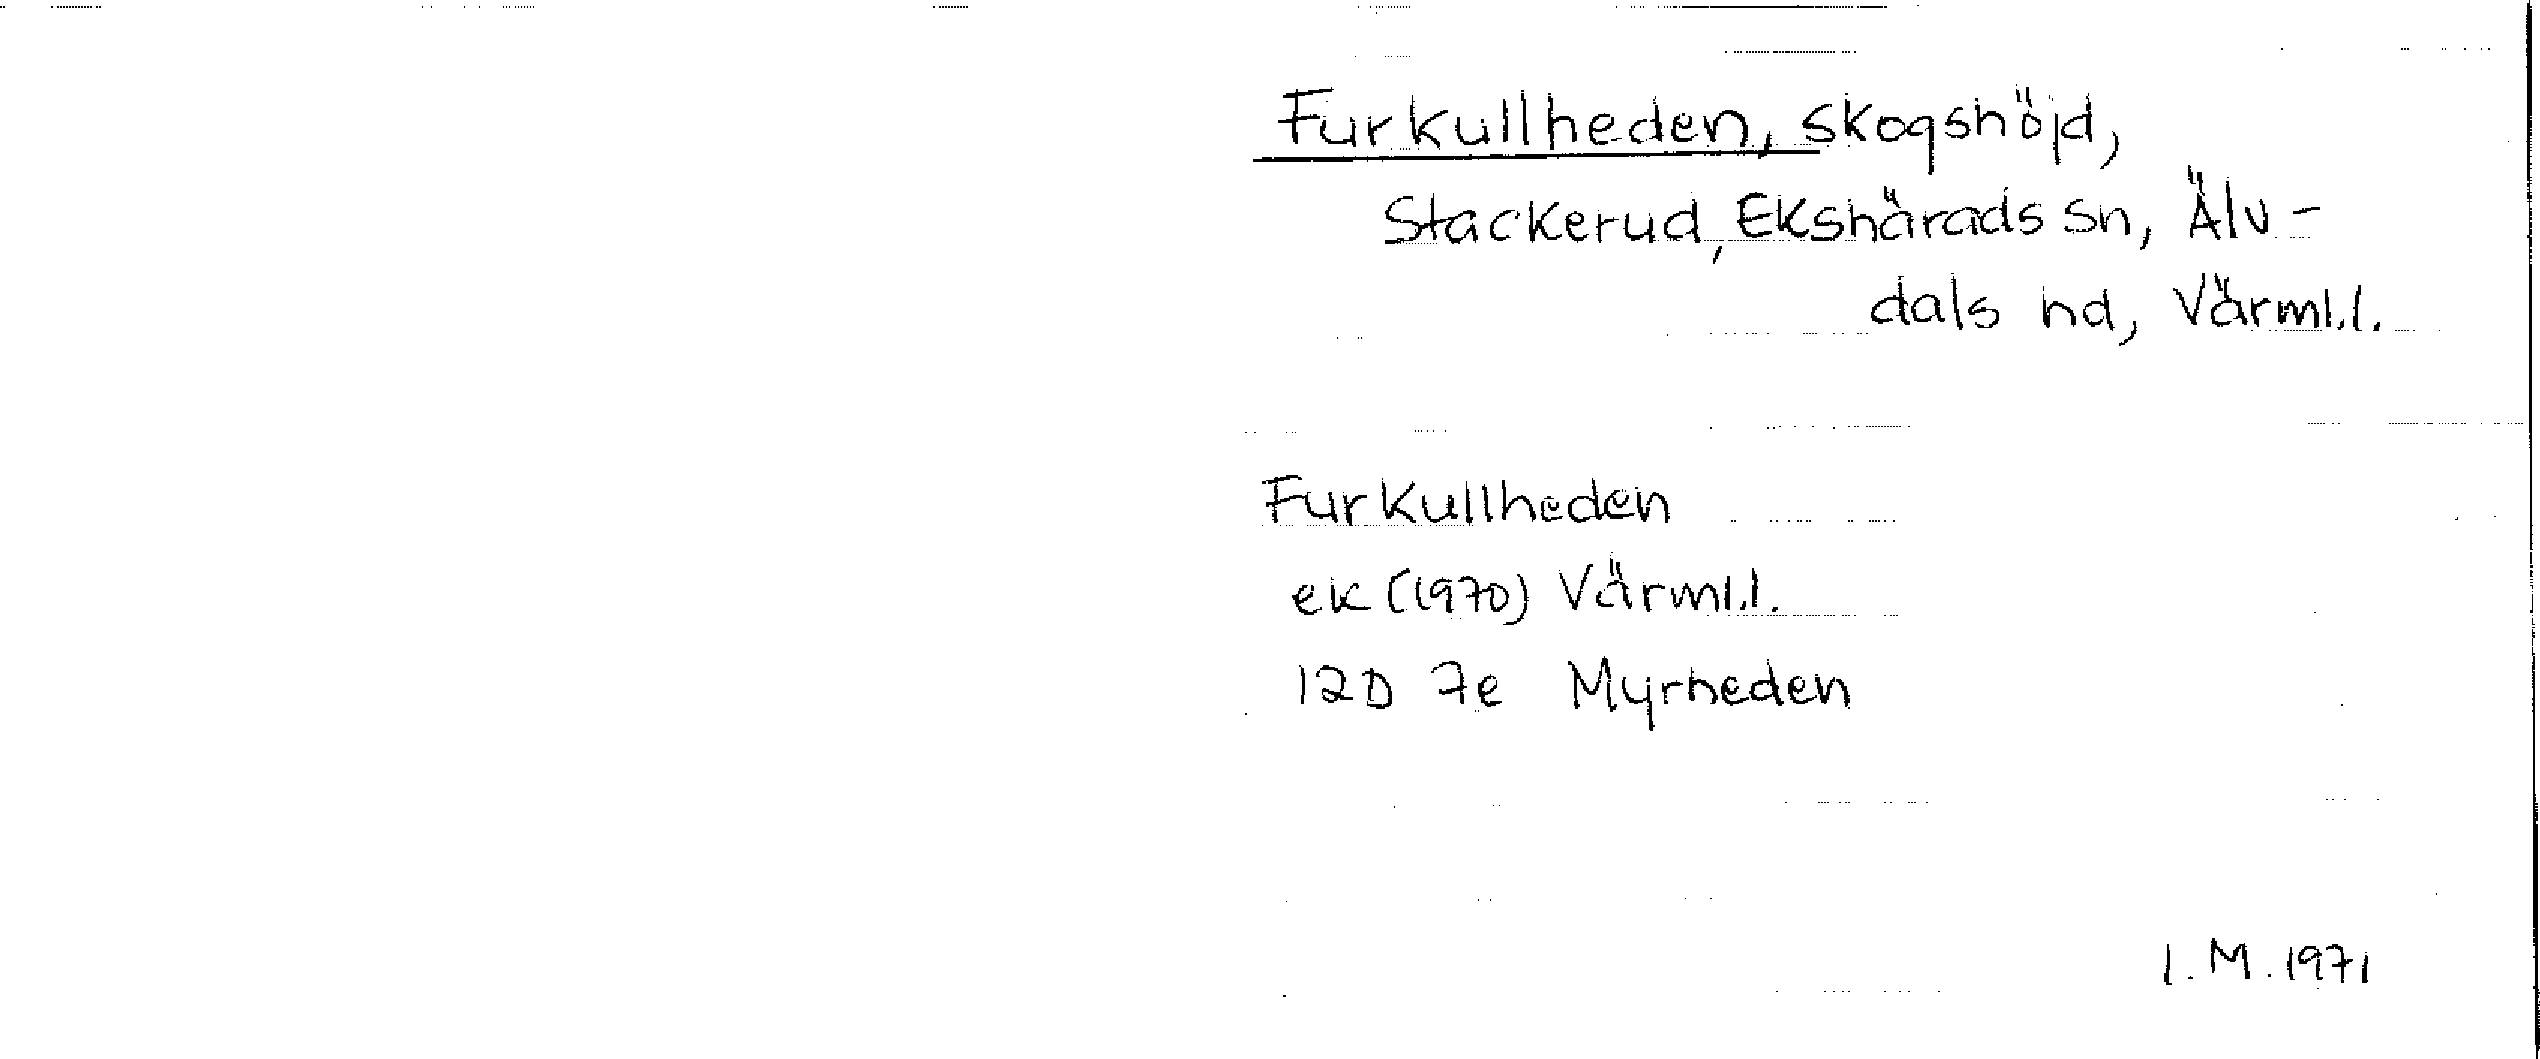 Furkullheden, skogshöjd,
Stackerud, Ekshärads sn, Älv-
dals hd, Värml.l.
Furkullheden
ek (1970) Värml.l.
12D 7e Myrheden
I.M. 1971